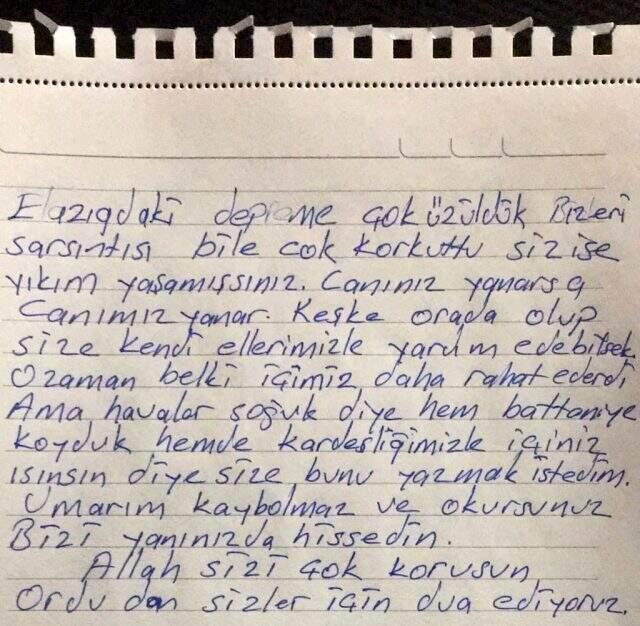 Elazıgdaki depreme çok üzüldük Bizleri
sarsıntısı bile cok korkuttu siz ise
yıkım yaşamıssınız. Canınız yanarsa
Canımız yanar. Keşke orada olup
size kendi ellerimizle yardım edebilsek.
Ozaman belki içimiz daha rahat ederdi
Ama havalar soğuk diye hem battaniye
koyduk hemde kardeşliğimizle içiniz
ısınsın diye size bunu yazmak istedim.
Umarım kaybolmaz ve okursunuz
Bizi yanınızda hissedin.
Allah sizi çok korusun
Ordu dan sizler için dua ediyoruz.